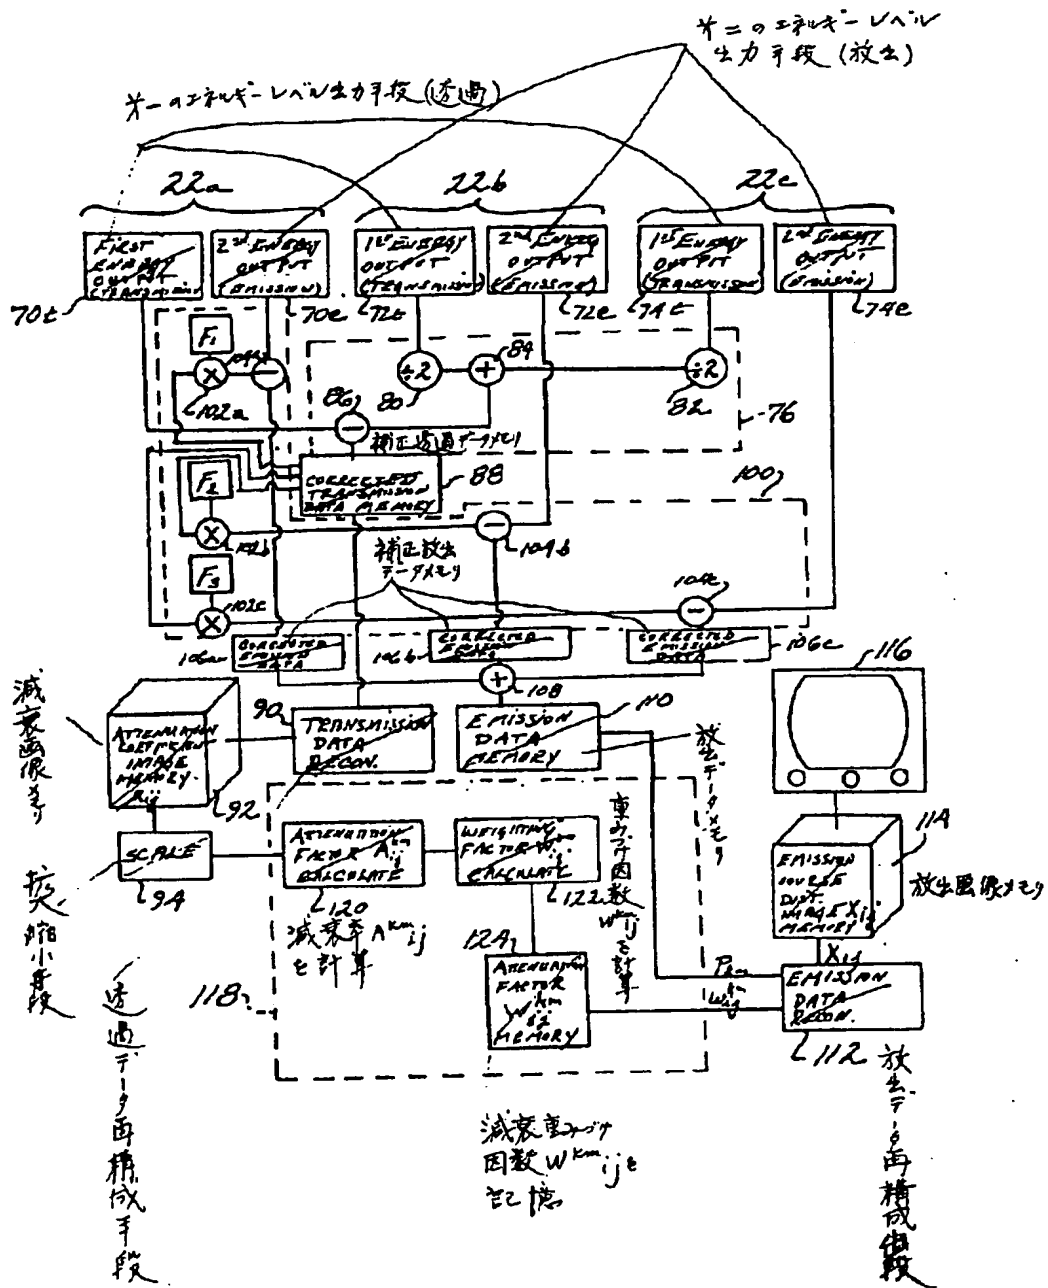 才二のエネルギーレベル
出力手段(放出)
才一のエネルギーレベル出力手段(透過)
22a
22b
22c
FIRST
ENERGY
OUTPUT
(TRANSMISSION)
2nd ENERGY
OUTPUT
(EMISSION)
1ST ENERGY
OUTPUT
(TRANSMISSION)
2nd ENERGY
OUTPUT
(EMISSION)
1ST ENERGY
OUTPUT
(TRANSMISSION)
2nd ENERGY
OUTPUT
(EMISSION)
70t
70e
72t
72e
74t
74e
F1
104a
×
−
102a
÷2
80
+
84
÷2
82
76
86
−
補正透過データメモリ
CORRECTED
TRANSMISSION
DATA MEMORY
88
100
F2
×
102b
−
104b
補正放出
データメモリ
F3
×
102c
104c
−
CORRECTED
EMISSION
DATA
106a
CORRECTED
EMISSION
DATA
106b
CORRECTED
EMISSION
DATA
106c
+
108
116
減衰画像メモリ
ATTENUATION
COEFFICIENT
IMAGE
MEMORY
92
90
TRANSMISSION
DATA
RECON.
EMISSION
DATA
MEMORY
110
放出データメモリ
SCALE
94
拡大縮小手段
ATTENUATION
FACTOR A km ij
CALCULATE
120
減衰率AKmij
を計算
WEIGHTING
FACTOR W km ij
CALCULATE
122
重みづけ因数WKmijを計算
124
ATTENUATION
FACTOR
W km ij
MEMORY
118
114
EMISSION
SOURCE
DIST.
IMAGE Xij
MEMORY
放出画像メモリ
Xij
Pkm
Wkmij
EMISSION
DATA
RECON.
112
透過データ再構成手段
減衰重みづけ
因数WKmijを
記憶
放出データ再構成手段